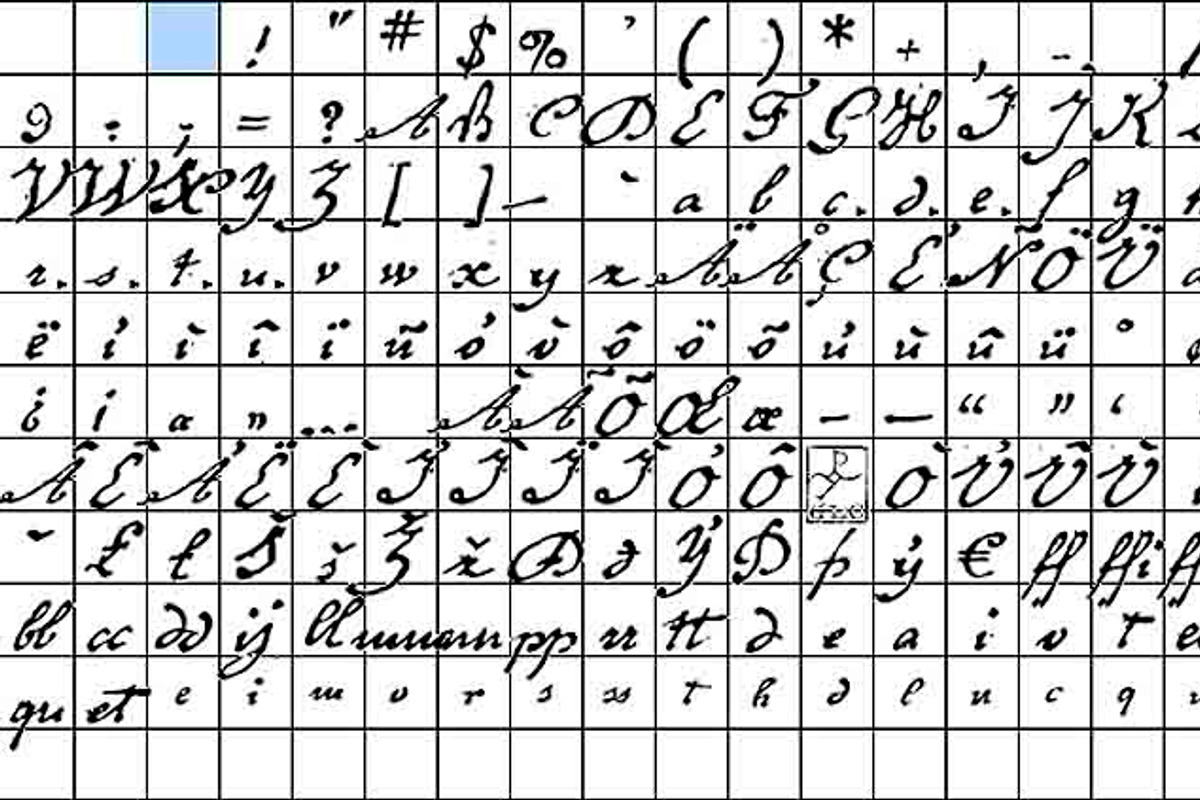 ! " # $ % ' ( ) * + , -
9 : ; = ? A B C D E F G H I J K
V W X Y Z [ ] _ ` a b c. d. e. f g
r. s. t. u. v w x y z Ä Å Ç É Ñ Ö Ü
ë í ì î ï ñ ó ò ô ö õ ú ù û ü °
¿ ¡ a » … À Ã Õ Œ œ – — “ ” ‘
Â Ê Á Ë È Í Î Ï Ì Ó Ô Ò Ú Û Ù
˘ Ł ł Š š Ž ž Đ ð Ý Þ þ ý € ff ffi
bb cc dd ij ll pp rr tt d e a i v t
qu et e i m o r s ss t h d l n c q